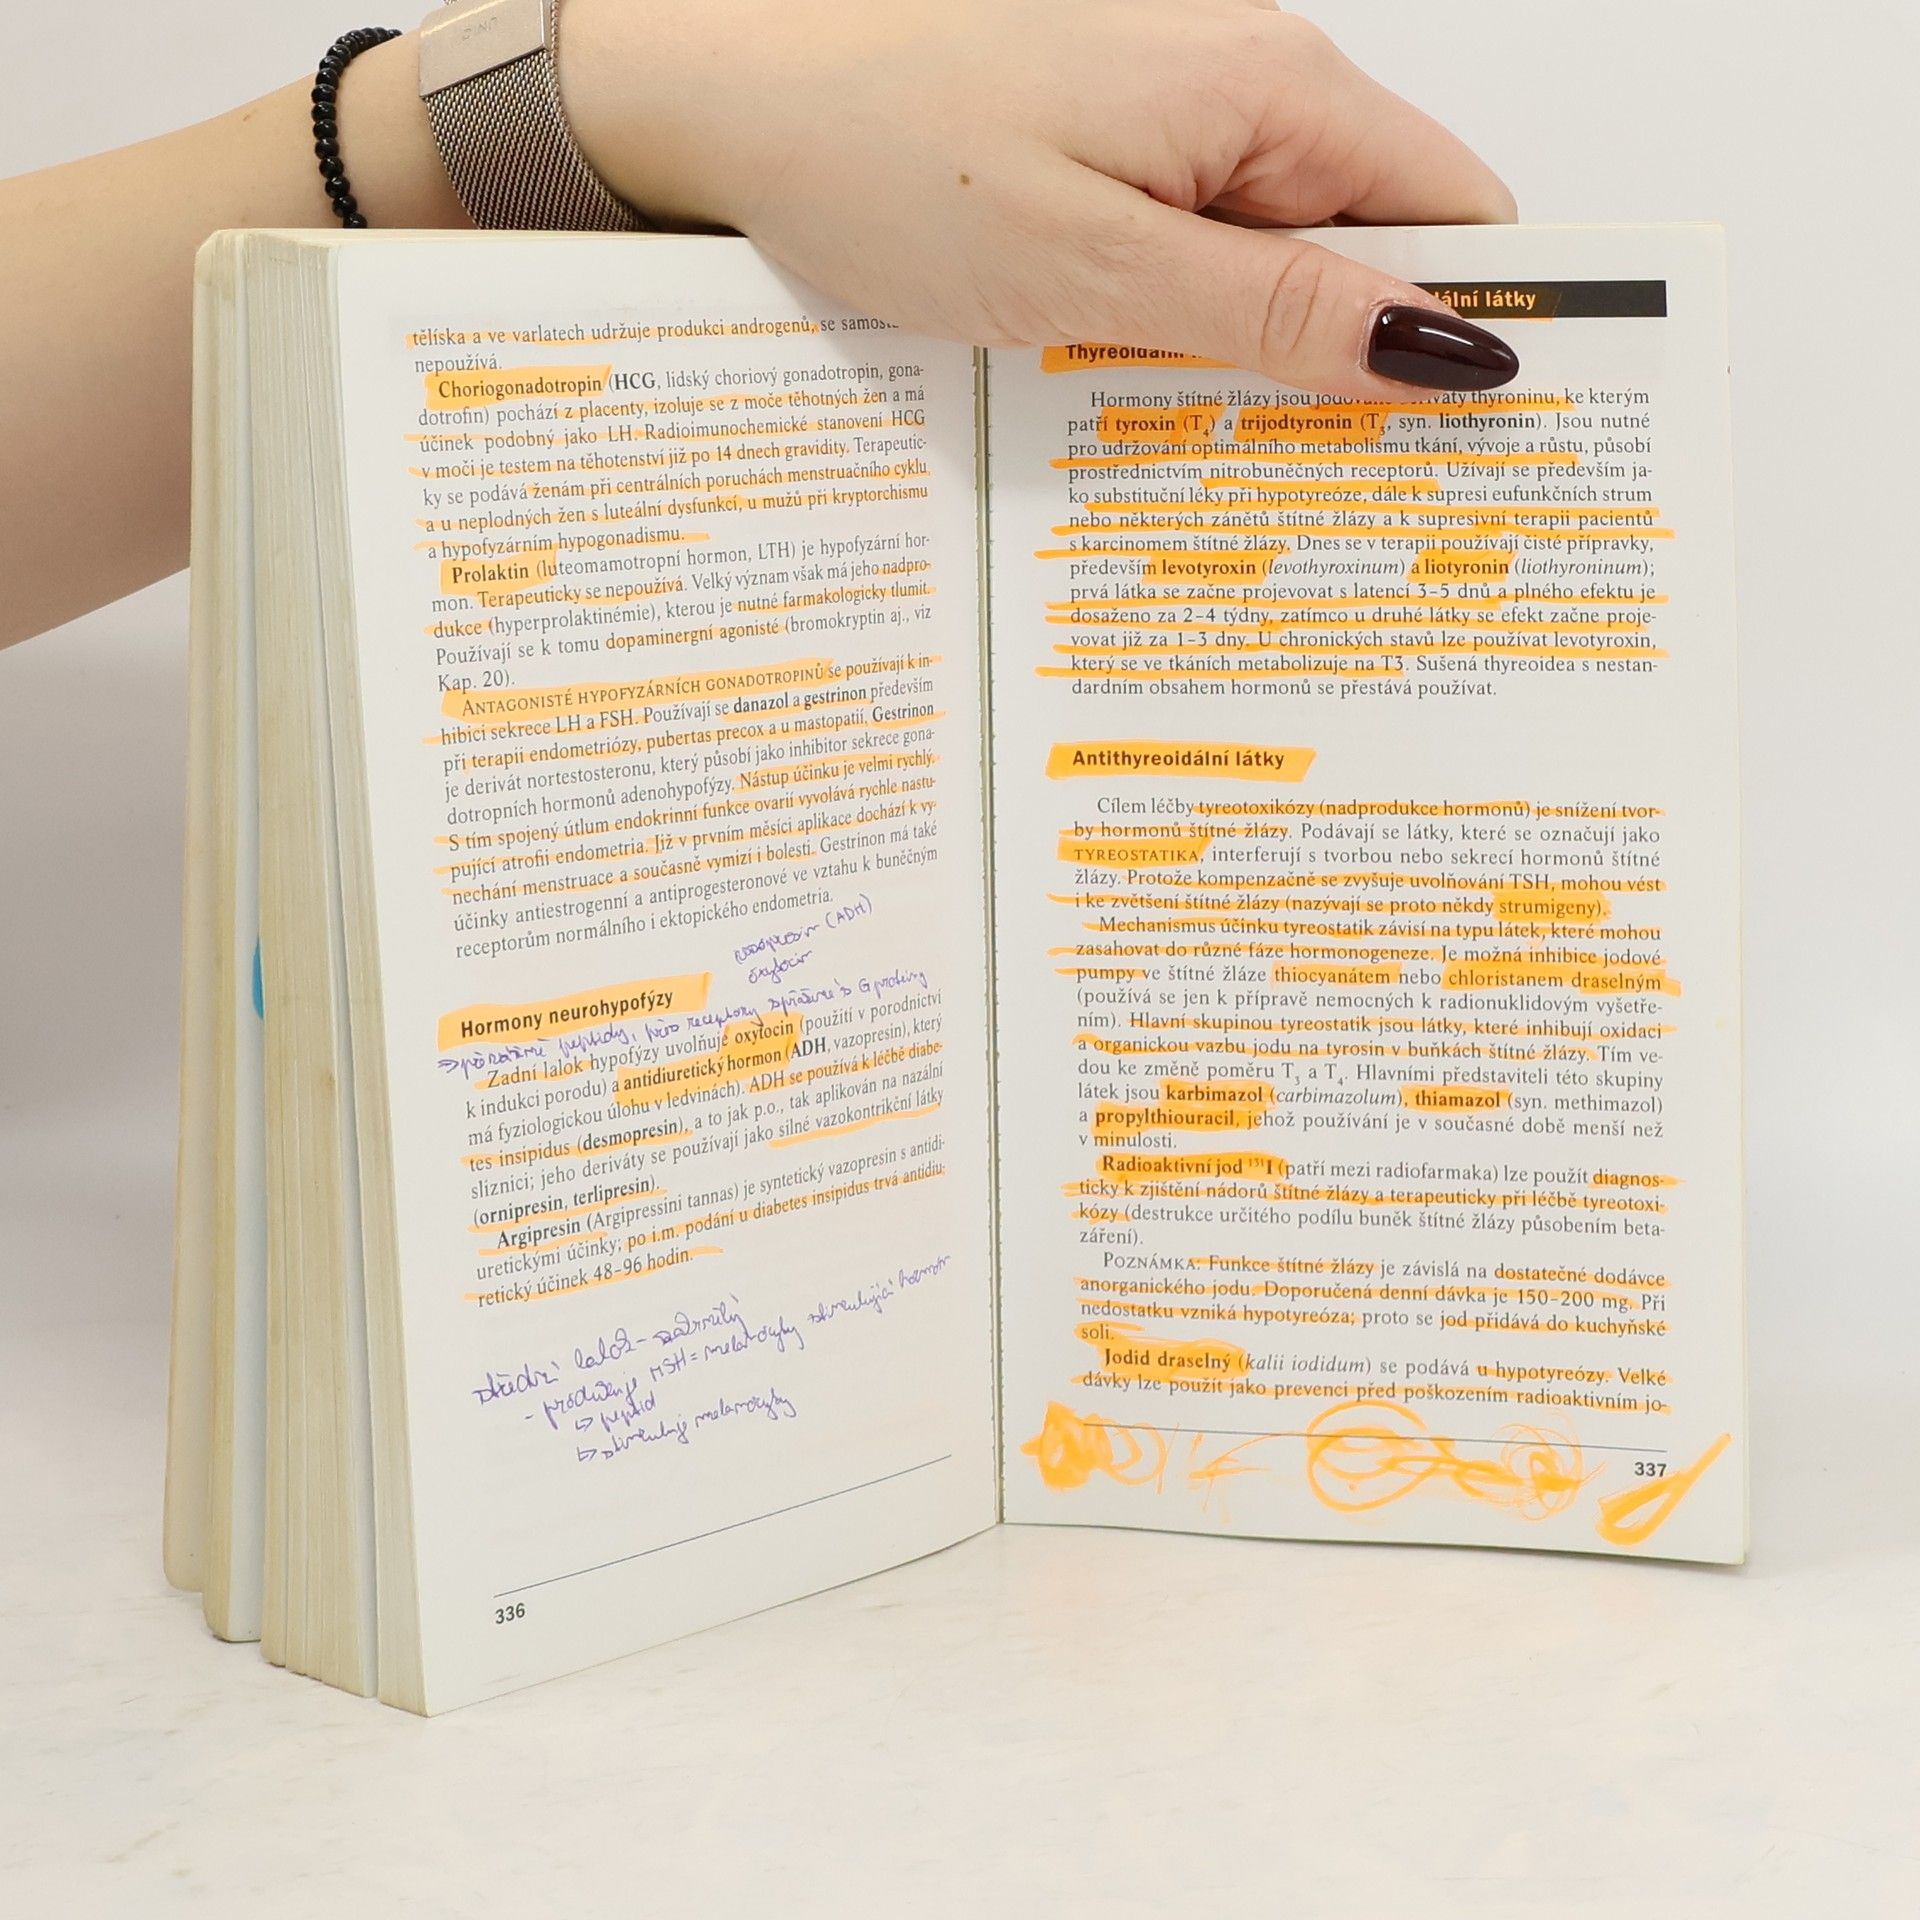 tělíska a ve varlatech udržuje produkci androgenů, se
nepoužívá.
Choriogonadotropin (HCG, lidský choriový gonadotropin, gona-
dotrofin) pochází z placenty, izoluje se z moče těhotných žen a má
účinek podobný jako LH. Radioimunochemické stanovení HCG
v moči je testem na těhotenství již po 14 dnech gravidity. Terapeutic-
ky se podává ženám při centrálních poruchách menstruačního cyklu,
a u neplodných žen s luteální dysfunkcí, u mužů při kryptorchismu
a hypofyzárním hypogonadismu.
Prolaktin (luteomamotropní hormon, LTH) je hypofyzární hor-
mon. Terapeuticky se nepoužívá. Velký význam však má jeho nadpro-
dukce (hyperprolaktinémie), kterou je nutné farmakologicky tlumit.
Používají se k tomu dopaminergní agonisté (bromokryptin aj., viz
Kap. 20).
ANTAGONISTÉ HYPOFYZÁRNÍCH GONADOTROPINŮ se používají k in-
hibici sekrece LH a FSH. Používají se danazol a gestrinon především
při terapii endometriózy, pubertas precox a u mastopatií. Gestrinon
je derivát nortestosteronu, který působí jako inhibitor sekrece gona-
dotropních hormonů adenohypofýzy. Nástup účinku je velmi rychlý.
S tím spojený útlum endokrinní funkce ovarií vyvolává rychle nastu-
pující atrofii endometria. Již v prvním měsíci aplikace dochází k vy-
nechání menstruace a současně vymizí i bolesti. Gestrinon má také
účinky antiestrogenní a antiprogesteronové ve vztahu k buněčným
receptorům normálního i ektopického endometria.
vasopresin (ADH)
oxytocin
Hormony neurohypofýzy
peptidy, přes receptory spřažené s G proteiny
Zadní lalok hypofýzy uvolňuje oxytocin (použití v porodnictví
k indukci porodu) a antidiuretický hormon (ADH, vazopresin), který
má fyziologickou úlohu v ledvinách). ADH se používá k léčbě diabe-
tes insipidus (desmopresin), a to jak p.o., tak aplikován na nazální
sliznici; jeho deriváty se používají jako silné vazokontrikční látky
(ornipresin, terlipresin).
Argipresin (Argipressini tannas) je syntetický vazopresin s antidi-
uretickými účinky; po i.m. podání u diabetes insipidus trvá antidiu-
retický účinek 48–96 hodin.
střední lalok -
- produkuje MSH = melanocyty stimulující hormon
↳ peptid
↳ stimuluje melanocyty
336
ální látky
Hormony štítné žlázy jsou thyroninu, ke kterým
patří tyroxin (T4) a trijodtyronin (T3, syn. liothyronin). Jsou nutné
pro udržování optimálního metabolismu tkání, vývoje a růstu, působí
prostřednictvím nitrobuněčných receptorů. Užívají se především ja-
ko substituční léky při hypotyreóze, dále k supresi eufunkčních strum
nebo některých zánětů štítné žlázy a k supresivní terapii pacientů
s karcinomem štítné žlázy. Dnes se v terapii používají čisté přípravky,
především levotyroxin (levothyroxinum) a liotyronin (liothyroninum);
prvá látka se začne projevovat s latencí 3–5 dnů a plného efektu je
dosaženo za 2–4 týdny, zatímco u druhé látky se efekt začne proje-
vovat již za 1–3 dny. U chronických stavů lze používat levotyroxin,
který se ve tkáních metabolizuje na T3. Sušená thyreoidea s nestan-
dardním obsahem hormonů se přestává používat.
Antithyreoidální látky
Cílem léčby tyreotoxikózy (nadprodukce hormonů) je snížení tvor-
by hormonů štítné žlázy. Podávají se látky, které se označují jako
TYREOSTATIKA, interferují s tvorbou nebo sekrecí hormonů štítné
žlázy. Protože kompenzačně se zvyšuje uvolňování TSH, mohou vést
i ke zvětšení štítné žlázy (nazývají se proto někdy strumigeny).
Mechanismus účinku tyreostatik závisí na typu látek, které mohou
zasahovat do různé fáze hormonogeneze. Je možná inhibice jodové
pumpy ve štítné žláze thiocyanátem nebo chloristanem draselným
(používá se jen k přípravě nemocných k radionuklidovým vyšetře-
ním). Hlavní skupinou tyreostatik jsou látky, které inhibují oxidaci
a organickou vazbu jodu na tyrosin v buňkách štítné žlázy. Tím ve-
dou ke změně poměru T3 a T4. Hlavními představiteli této skupiny
látek jsou karbimazol (carbimazolum), thiamazol (syn. methimazol)
a propylthiouracil, jehož používání je v současné době menší než
v minulosti.
Radioaktivní jod ¹³¹I (patří mezi radiofarmaka) lze použít diagnos-
ticky k zjištění nádorů štítné žlázy a terapeuticky při léčbě tyreotoxi-
kózy (destrukce určitého podílu buněk štítné žlázy působením beta-
záření).
POZNÁMKA: Funkce štítné žlázy je závislá na dostatečné dodávce
anorganického jodu. Doporučená denní dávka je 150–200 mg. Při
nedostatku vzniká hypotyreóza; proto se jod přidává do kuchyňské
soli.
Jodid draselný (kalii iodidum) se podává u hypotyreózy. Velké
dávky lze použít jako prevenci před poškozením radioaktivním jo-
337